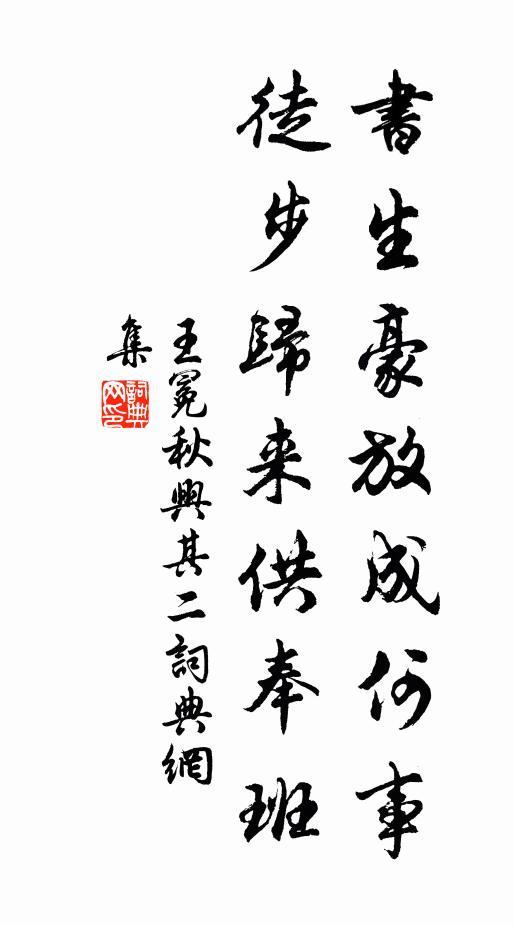 書生豪放成何事
徒步歸来供奉班
王冕秋興其二詞典網
集
詞典
网印